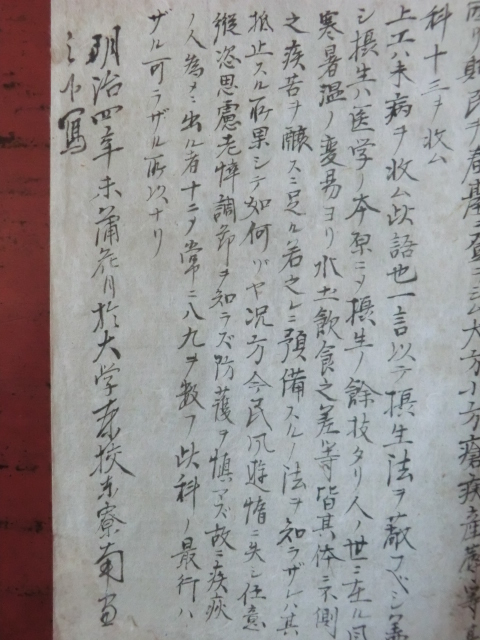 民ヲ春臺ニ登
科十三ヲ收ム
上工ハ未病ヲ收ム此語也一言以テ摂生法ヲ蔽フベシ蓋
シ摂生ハ医学ノ本原ニメ摂生ノ餘技タリ人ノ世ニ在ル
寒暑温ノ変易ヨリ水土飲食之差等皆其体ニ不測
之疾苦ヲ醸スニ足ル若之レニ預備スルノ法ヲ知ラザレハ其
抵止スル所果シテ如何ゾヤ况方今民风遊惰ニ失シ任意
縦恣思慮老悴調節ヲ知ラズ防護ヲ慎マズ故ニ疾疢
ノ人為ニ出ル者十ニメ常ニ八九ヲ数フ此科ノ最行ハ
ザル可ラザル所以ナリ
明治四年未蒲花月於大学東校東寮南
之下寫